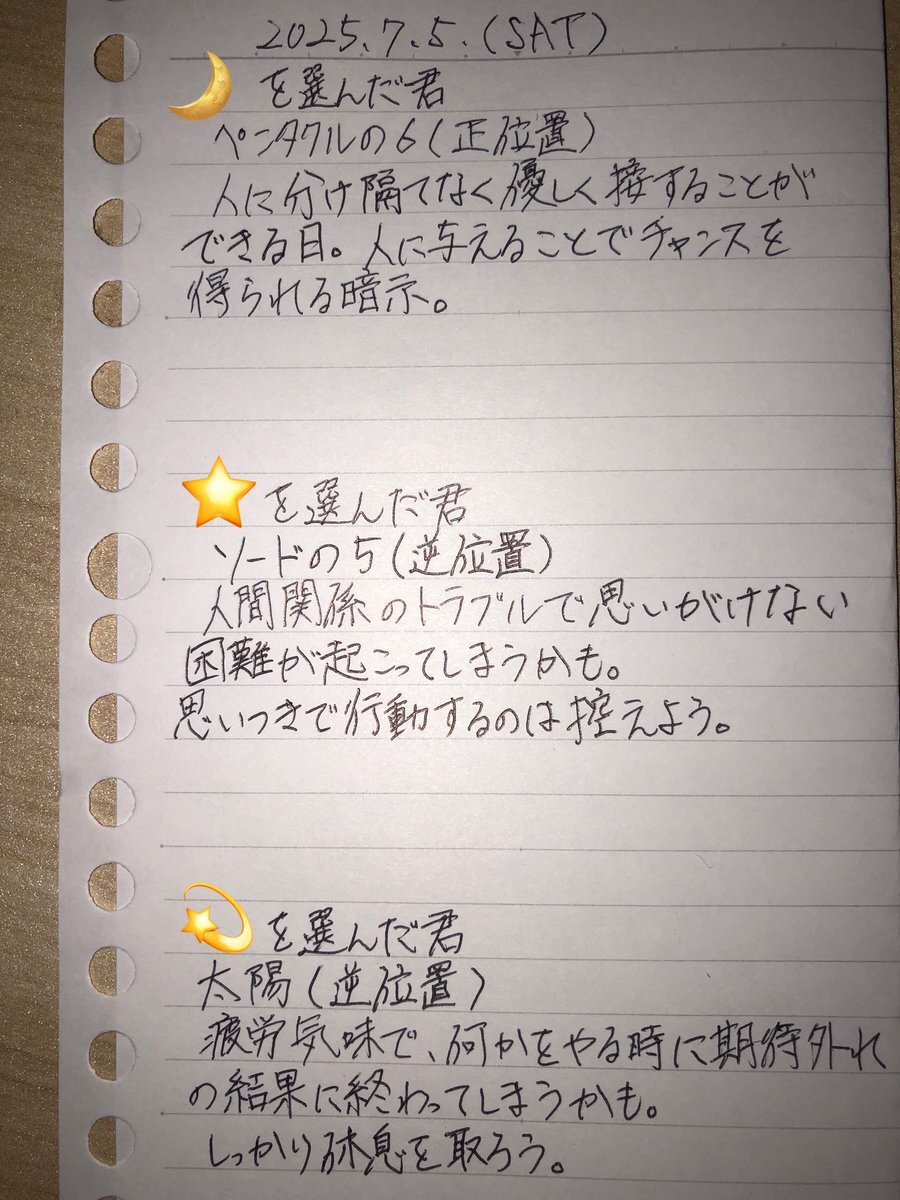 2025.7.5.(SAT)
🌙を選んだ君
ペンタクルの6(正位置)
人に分け隔てなく優しく接することが
できる日。人に与えることでチャンスを
得られる暗示。
⭐を選んだ君
ソードの5(逆位置)
人間関係のトラブルで思いがけない
困難が起こってしまうかも。
思いつきで行動するのは控えよう。
💫を選んだ君
太陽(逆位置)
疲労気味で、何かをやる時に期待外れ
の結果に終わってしまうかも。
しっかり休息を取ろう。